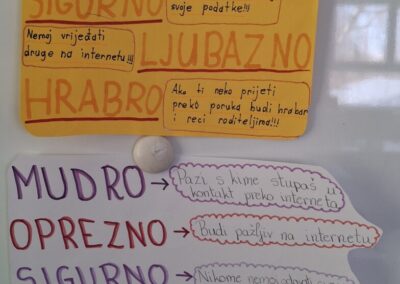 SIGURNO
svoje podatke!!!
Nemoj vrijeđati
druge na internetu!!!
LJUBAZNO
HRABRO
Ako ti neko prijeti
preko poruka budi hrabar
i reci roditeljima!!!
MUDRO →
Pazi s kime stupaš u
kontakt preko interneta
OPREZNO →
Budi pažljiv na internetu
SIGURNO →
Nikome nemoj